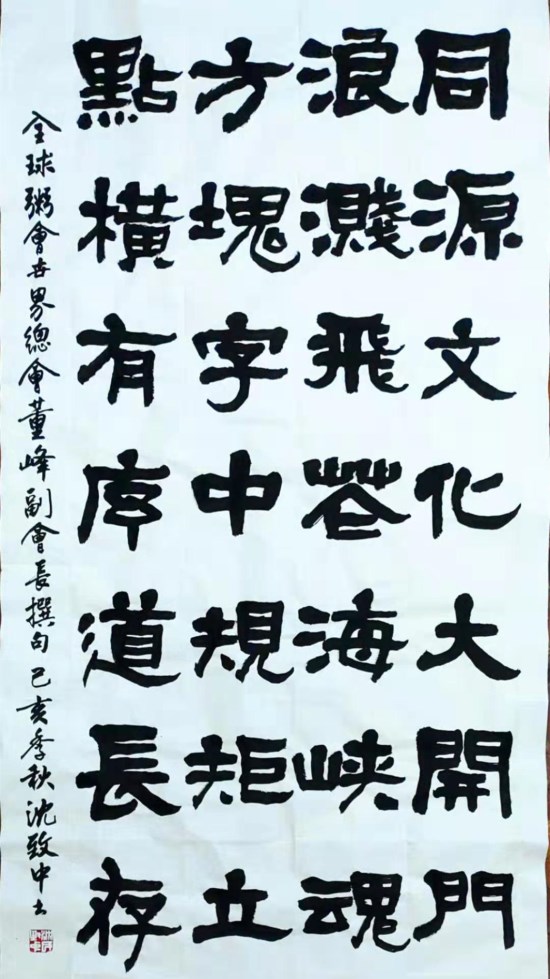 同源文化大開門
浪濺飛花海峽魂
方塊字中規矩立
點橫有序道長存
全球粥會世界總會董峰副會長撰句己亥季秋沈致中書